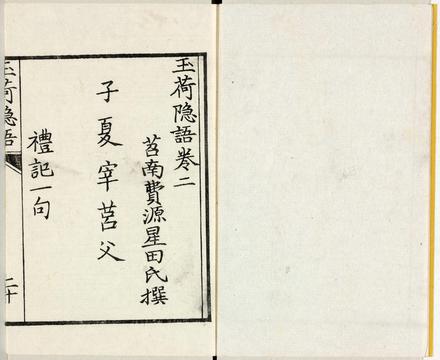 玉荷隐語卷二
苕南費源星田氏撰
子夏宰莒父
禮記一句
玉荷隐語
二十